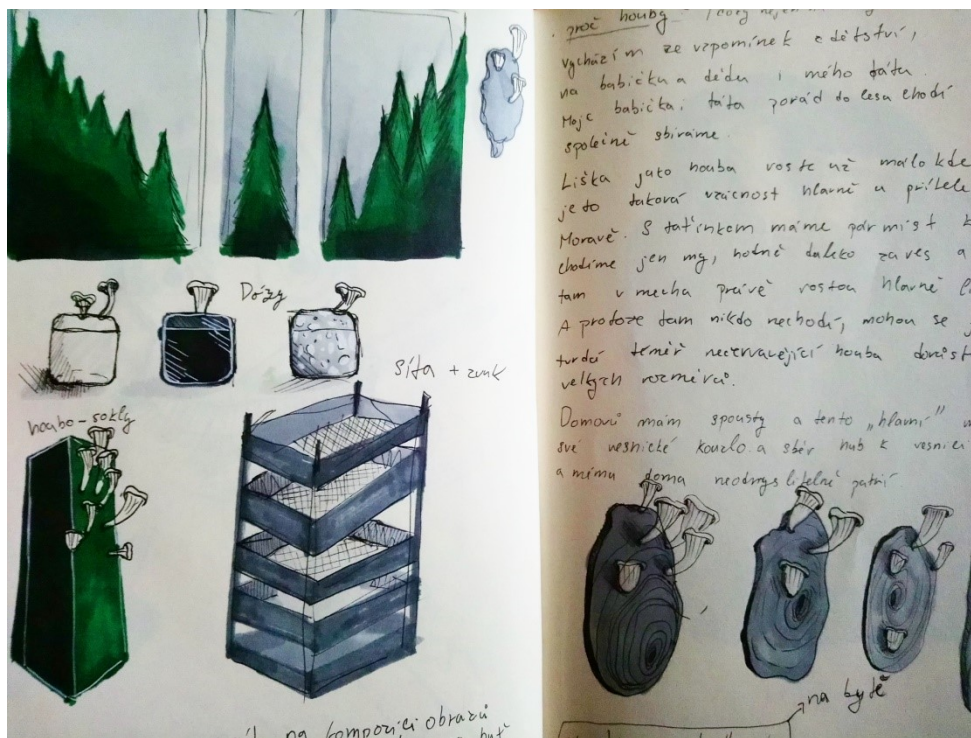 Dózy
síta + zvuk
houbo-sokly
na kompozici obrazů
být
proč houby -
vycházím ze vzpomínek z dětství,
na babičku a dědu i mého tátu.
Moje babička i táta pořád do lesa chodí
společně sbíráme.
Liška jako houba roste už málo kde
je to taková vzácnost hlavně u přítele
Moravě. S tatínkem máme pár míst k
chodíme jen my, hodně daleko za ves a
tam v mechu právě rostou hlavně
A protoze tam nikdo nechodí, mohou se
tvrdá téměř nečervavějící houba dorůst
velkých rozměrů.
Domovů mám spousty a tento „hlavní"
své vesnické kouzlo a sběr hub k vesnici
a mému doma neodmyslitelně patří
na bytě